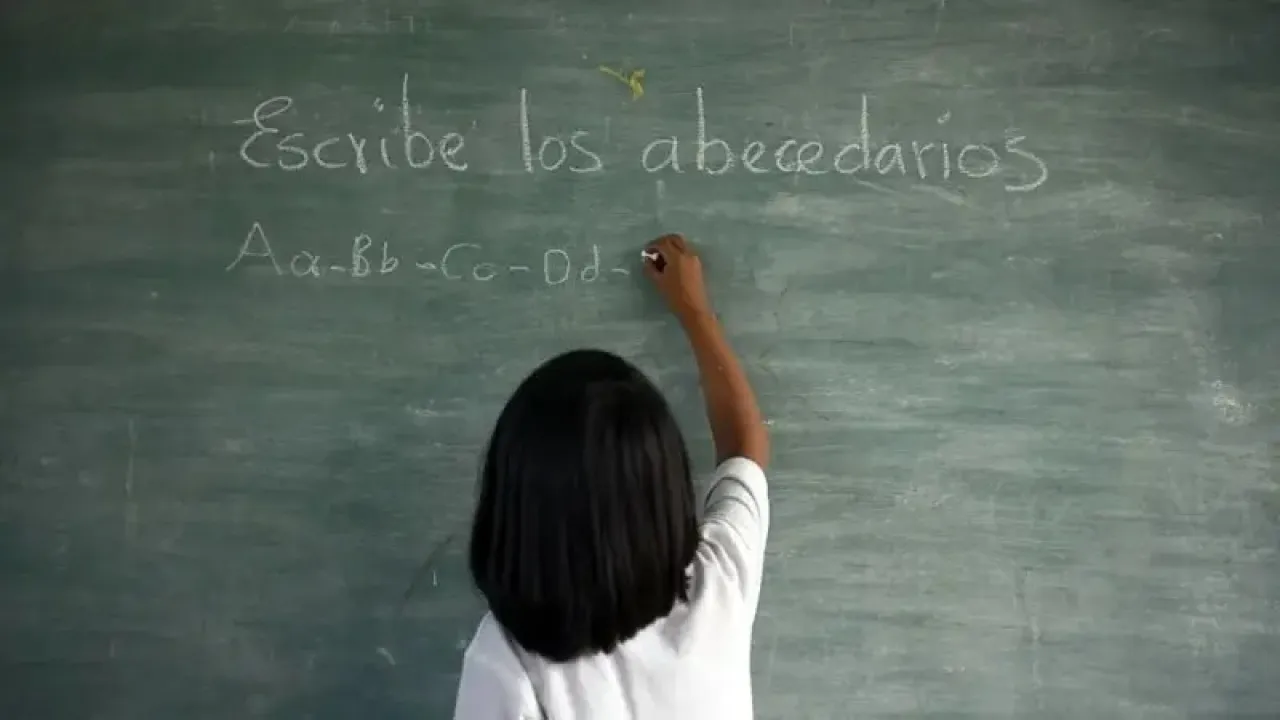 Escribe los abecedarios
Aa-Bb-Cc-Dd-